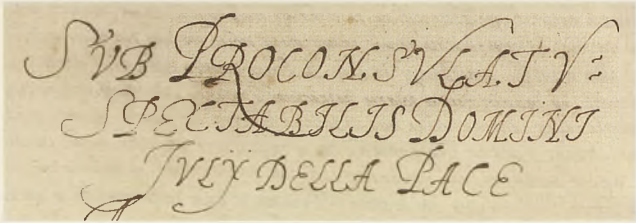 SVB PROCONSVLATV:
SPECTABILIS DOMINI
IVLIJ DELLA PACE